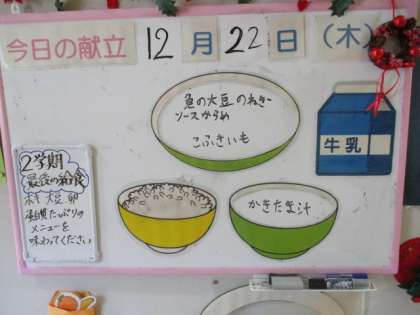 今日の献立 12月22日(木)
魚の大豆のねぎ
ソースがらめ
こふきいも
牛乳
かきたま汁
2学期
最後の給食
大豆 卵
たっぷりの
メニューを
味わってください